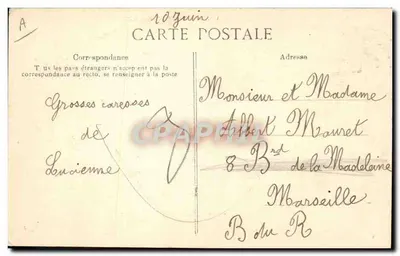 A
10 Juin
CARTE POSTALE
Correspondance
Tous les pays étrangers n'acceptent pas la
correspondance au recto, se renseigner à la poste
Adresse
Grosses caresses
de
Lucienne
Monsieur et Madame
Albert Mouret
8 Brd de la Madeleine
Marseille
B du R